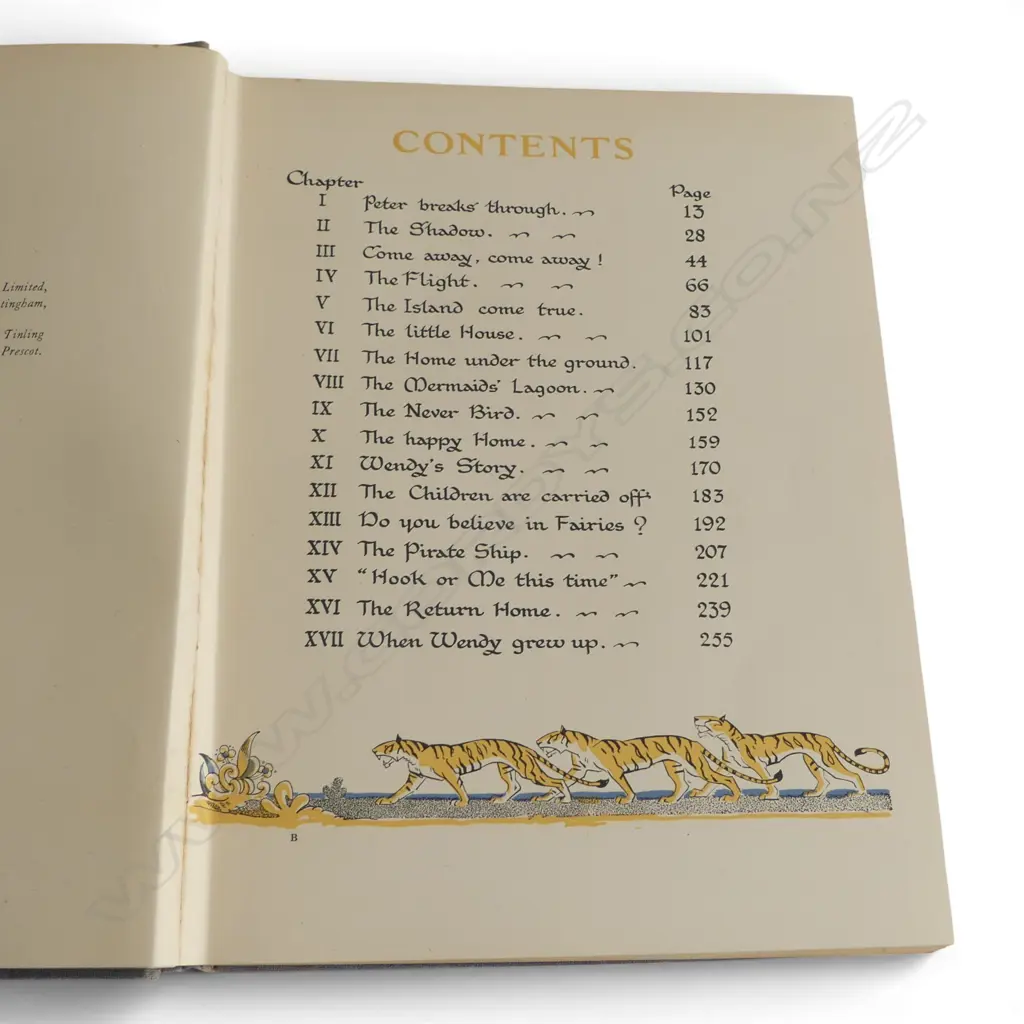 Limited,
tingham,
Tinling
Prescot.
CONTENTS
Chapter Page
I Peter breaks through. 13
II The Shadow. 28
III Come away, come away! 44
IV The Flight. 66
V The Island come true. 83
VI The little House. 101
VII The Home under the ground. 117
VIII The Mermaids' Lagoon. 130
IX The Never Bird. 152
X The happy Home. 159
XI Wendy's Story. 170
XII The Children are carried off. 183
XIII Do you believe in Fairies? 192
XIV The Pirate Ship. 207
XV "Hook or Me this time" 221
XVI The Return Home. 239
XVII When Wendy grew up. 255
B
WWW.CORDYS.CO.NZ